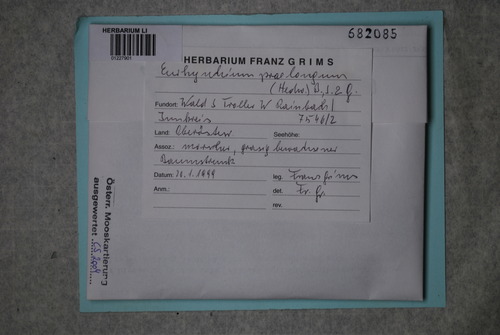 HERBARIUM LI
01227901
682085
HERBARIUM FRANZ GRIMS
Eurhynchium praelongum
(Hedw.) B. S. G.
Fundort: Wald S Traller W Rainbach/
Innkreis 7546/2
Land: Oberösterr. Seehöhe:
Assoz.: morscher,
Baumstrunk
Datum: 10.1.1999 leg. Franz Grims
Anm.: det. Fr. Gr.
rev.
Österr. Mooskartierung
ausgewertet